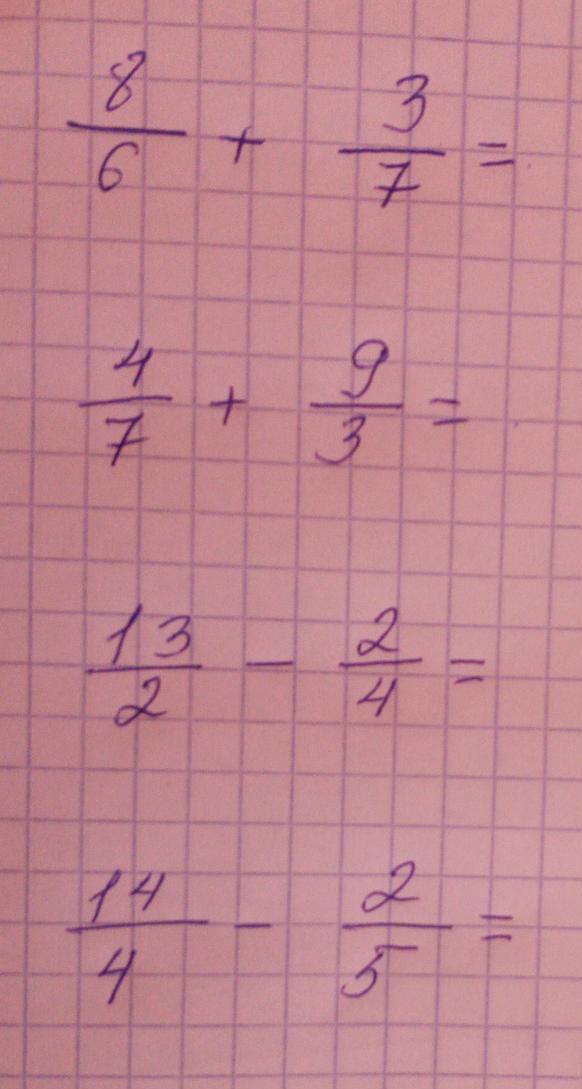 8/6 + 3/7 =
4/7 + 9/3 =
13/2 - 2/4 =
14/4 - 2/5 =